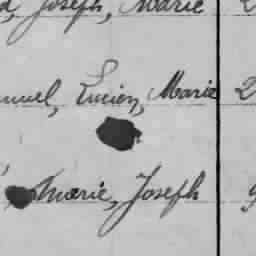 Joseph, Marie 2
nuel, Lucien, Marie 2
Marie, Joseph